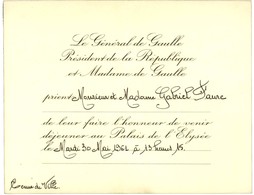 Le Général de Gaulle
Président de la République
et Madame de Gaulle
prient Monsieur et Madame Gabriel Faure
de leur faire l'honneur de venir
déjeuner au Palais de l'Elysée
le Mardi 30 Mai 1962 à 13 heures 15.
Tenue de Ville